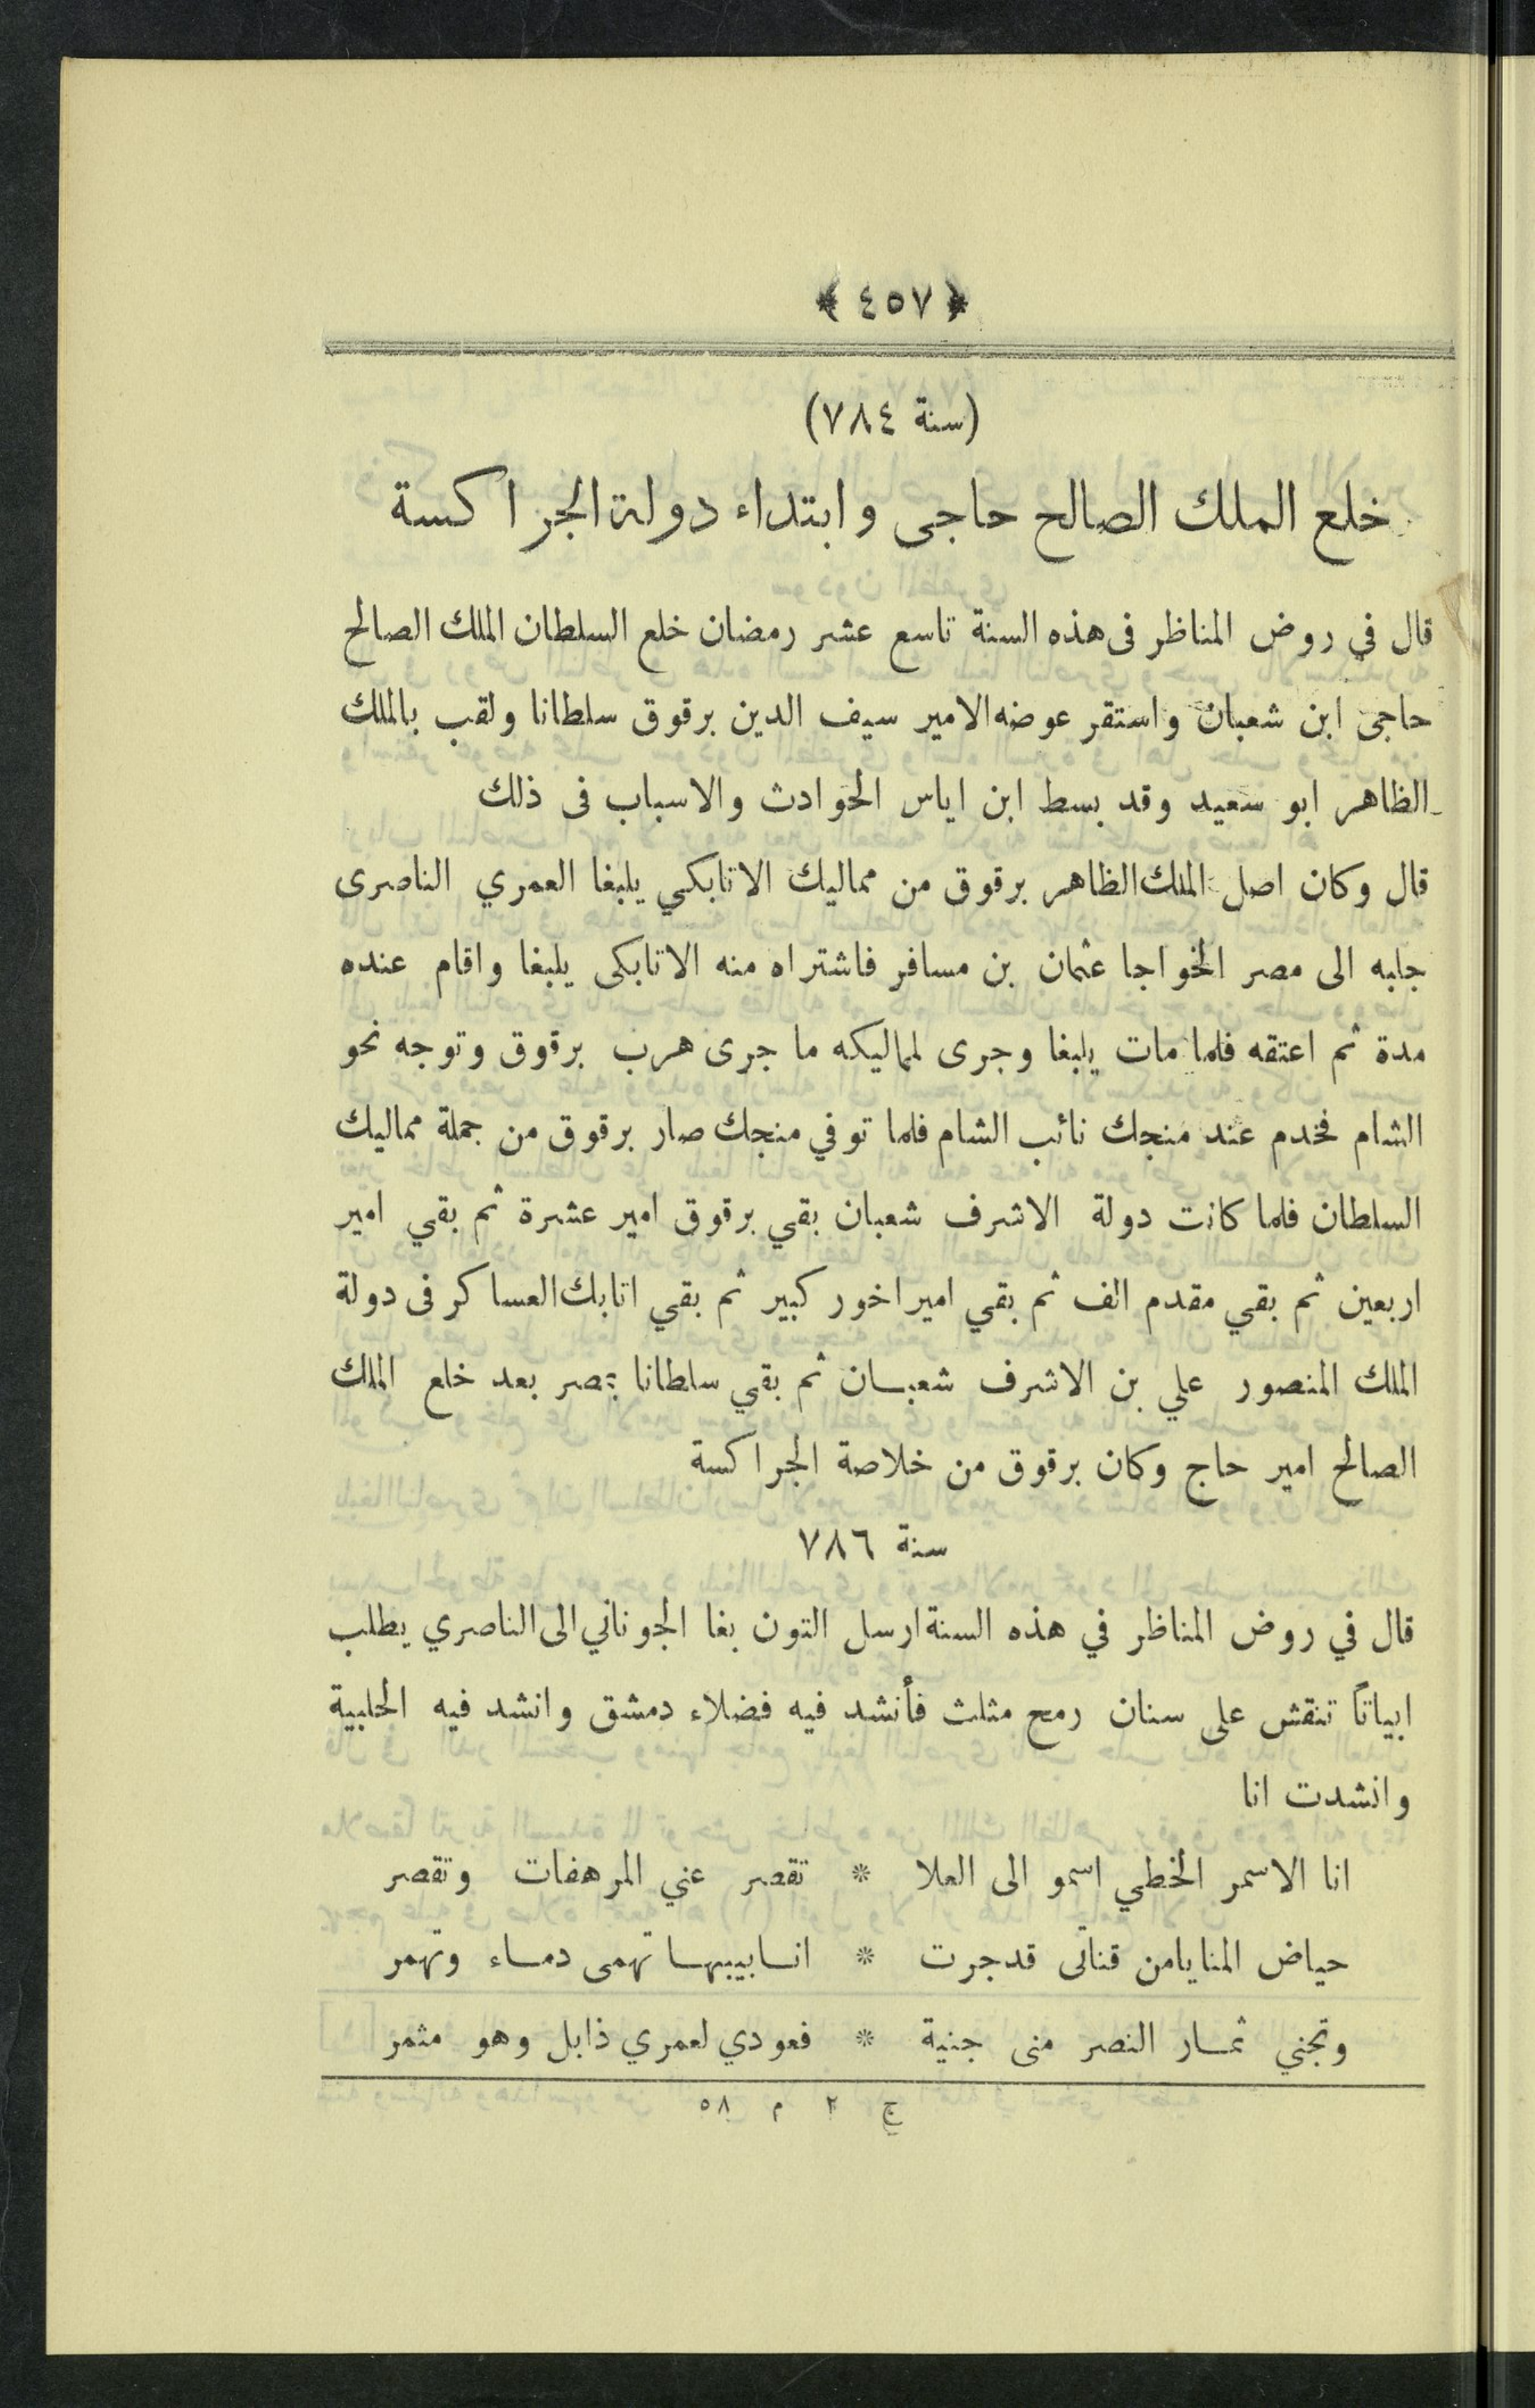 ﴿ ٤٥٧ ﴾
(سنة ٧٨٤)
خلع الملك الصالح حاجى وابتداء دولة الجراكسة
قال في روض المناظر فى هذه السنة تاسع عشر رمضان خلع السلطان الملك الصالح
حاجى ابن شعبان واستقر عوضه الامير سيف الدين برقوق سلطانا ولقب بالملك
الظاهر ابو سعيد وقد بسط ابن اياس الحوادث والاسباب فى ذلك
قال وكان اصل الملك الظاهر برقوق من مماليك الاتابكي يلبغا العمري الناصرى
جلبه الى مصر الخواجا عثمان بن مسافر فاشتراه منه الاتابكى يلبغا واقام عنده
مدة ثم اعتقه فلما مات يلبغا وجرى لمماليكه ما جرى هرب برقوق وتوجه نحو
الشام فخدم عند منجك نائب الشام فلما توفي منجك صار برقوق من جملة مماليك
السلطان فلما كانت دولة الاشرف شعبان بقي برقوق امير عشرة ثم بقي امير
اربعين ثم بقي مقدم الف ثم بقي امير اخور كبير ثم بقي اتابك العساكر فى دولة
الملك المنصور علي بن الاشرف شعبان ثم بقي سلطانا بمصر بعد خلع الملك
الصالح امير حاج وكان برقوق من خلاصة الجراكسة
سنة ٧٨٦
قال في روض المناظر في هذه السنة ارسل التون بغا الجوناني الى الناصري يطلب
ابياتاً تنقش على سنان رمح مثلث فأنشد فيه فضلاء دمشق وانشد فيه الحلبية
وانشدت انا
انا الاسمر الخطي اسمو الى العلا * تقصر عني المرهفات وتقصر
حياض المنايا من قناتى قد جرت * انابيبها تهمى دماء وتهمر
وتجني ثمار النصر منى جنية * فعودي لعمري ذابل وهو مثمر
ج ٢ م ٥٨